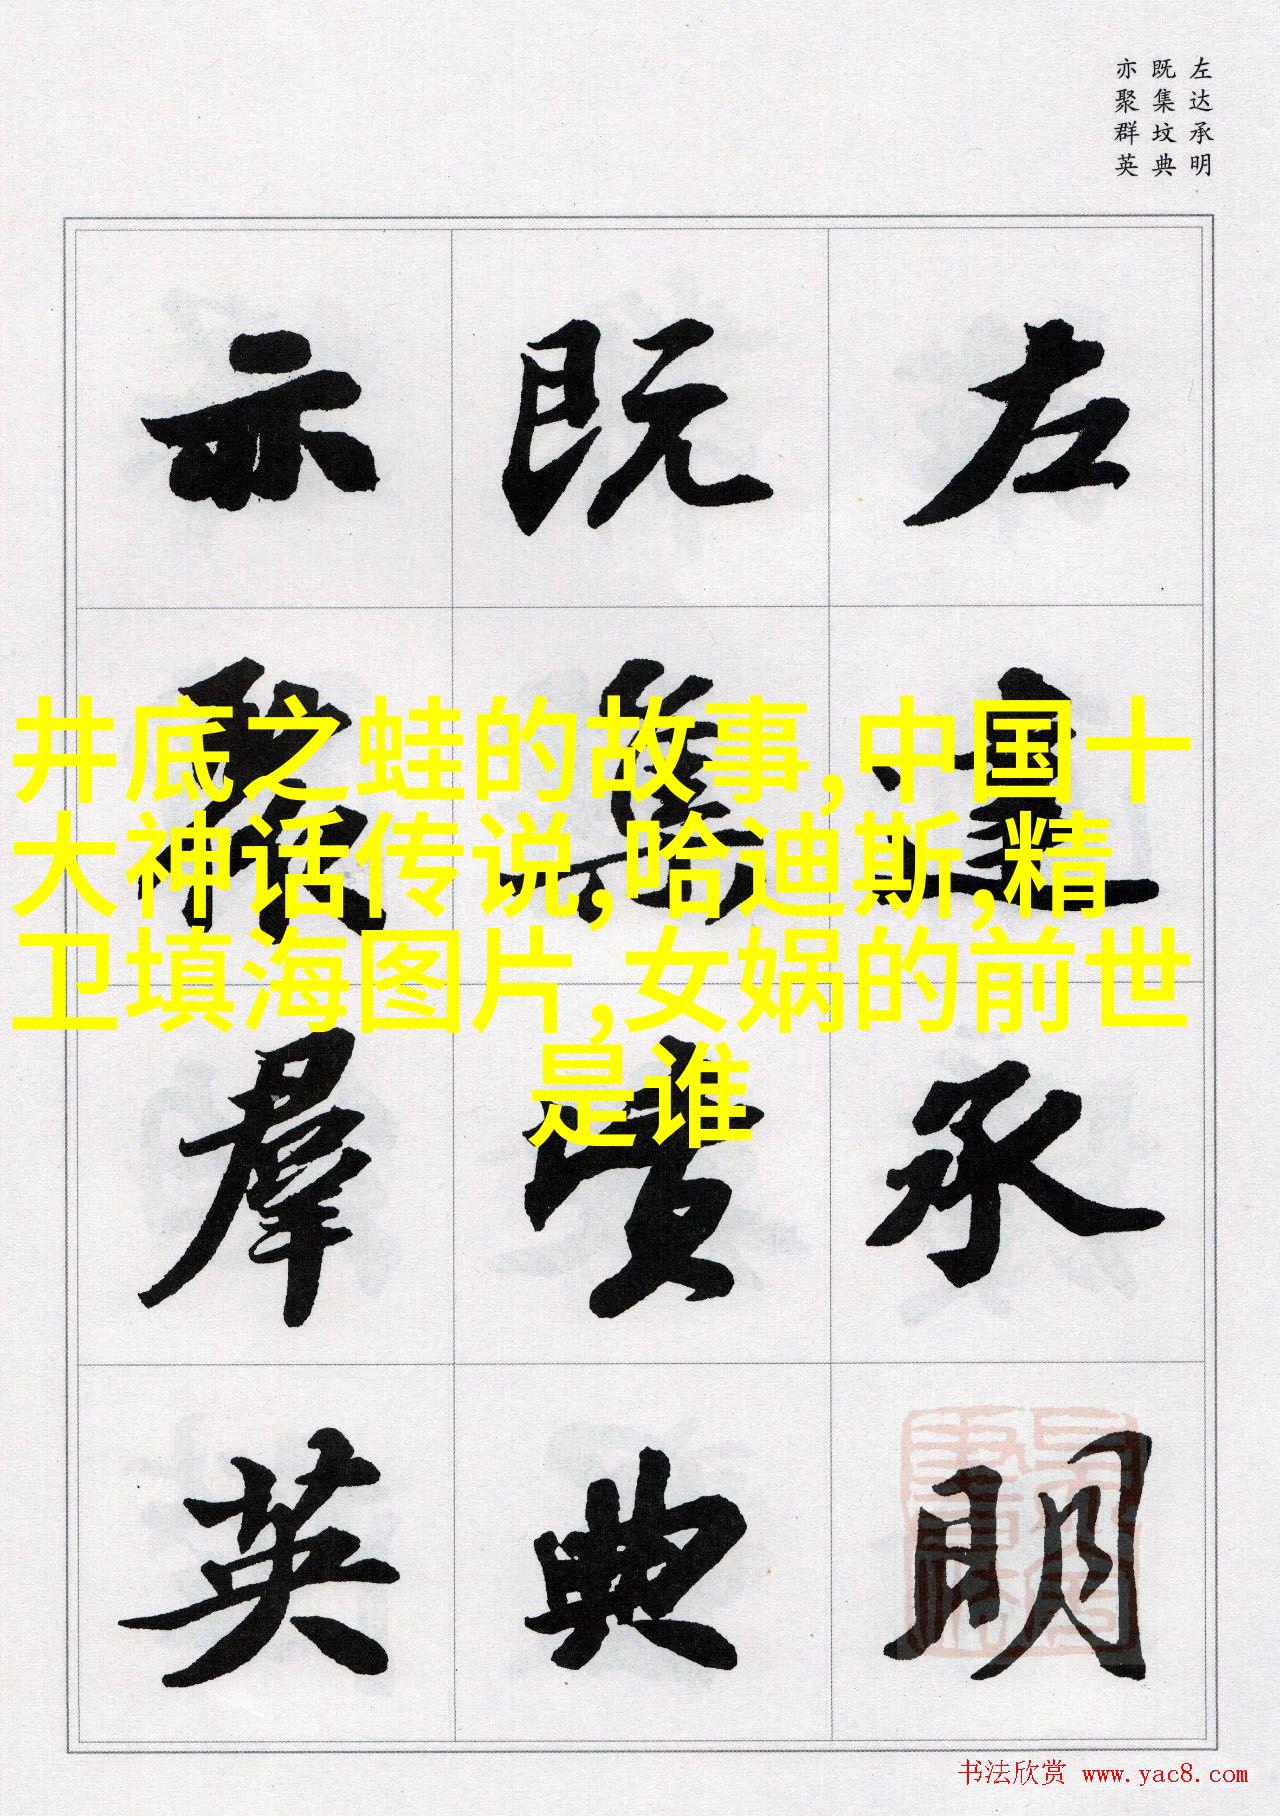 左达承明
既集坟典
亦聚群英
左達承明
既集墳典
亦聚羣英
井底之蛙的故事,中国十
大神话传说,哈迪斯,精
卫填海图片,女娲的前世
是谁
书法欣赏 www.yac8.com